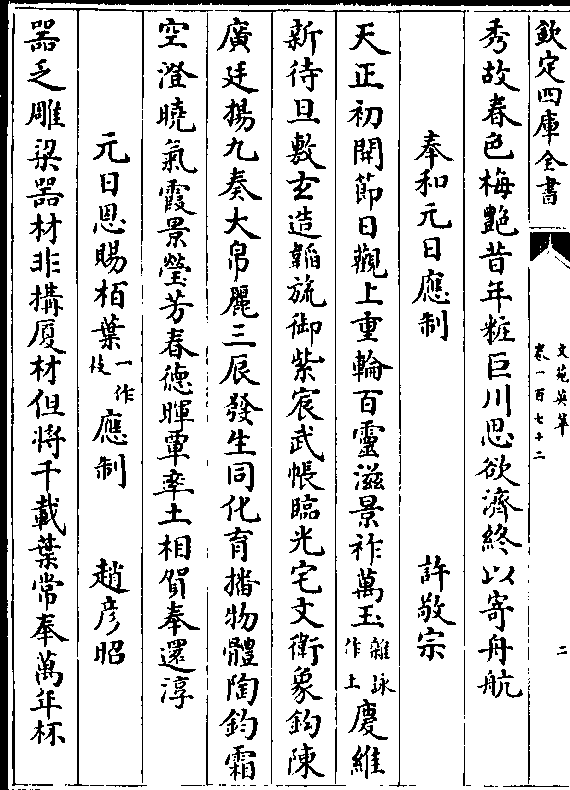 欽定四庫全書
文苑英華
卷一百七十二
二
秀故春色梅艷昔年粧巨川思欲濟終以寄舟航
奉和元日應制 許敬宗
天正初開節日觀上重輪百靈滋景祚萬玉雜詠作土慶維
新待旦敷玄造韜旒御紫宸武帳臨光宅文衛象鈎陳
廣廷揚九奏大帛麗三辰發生同化育播物體陶鈞霜
空澄曉氣霞景瑩芳春德暉覃率土相賀奉還淳
元日恩賜栢葉一作枝應制 趙彦昭
器乏雕梁器材非構厦材但將千載葉常奉萬年杯